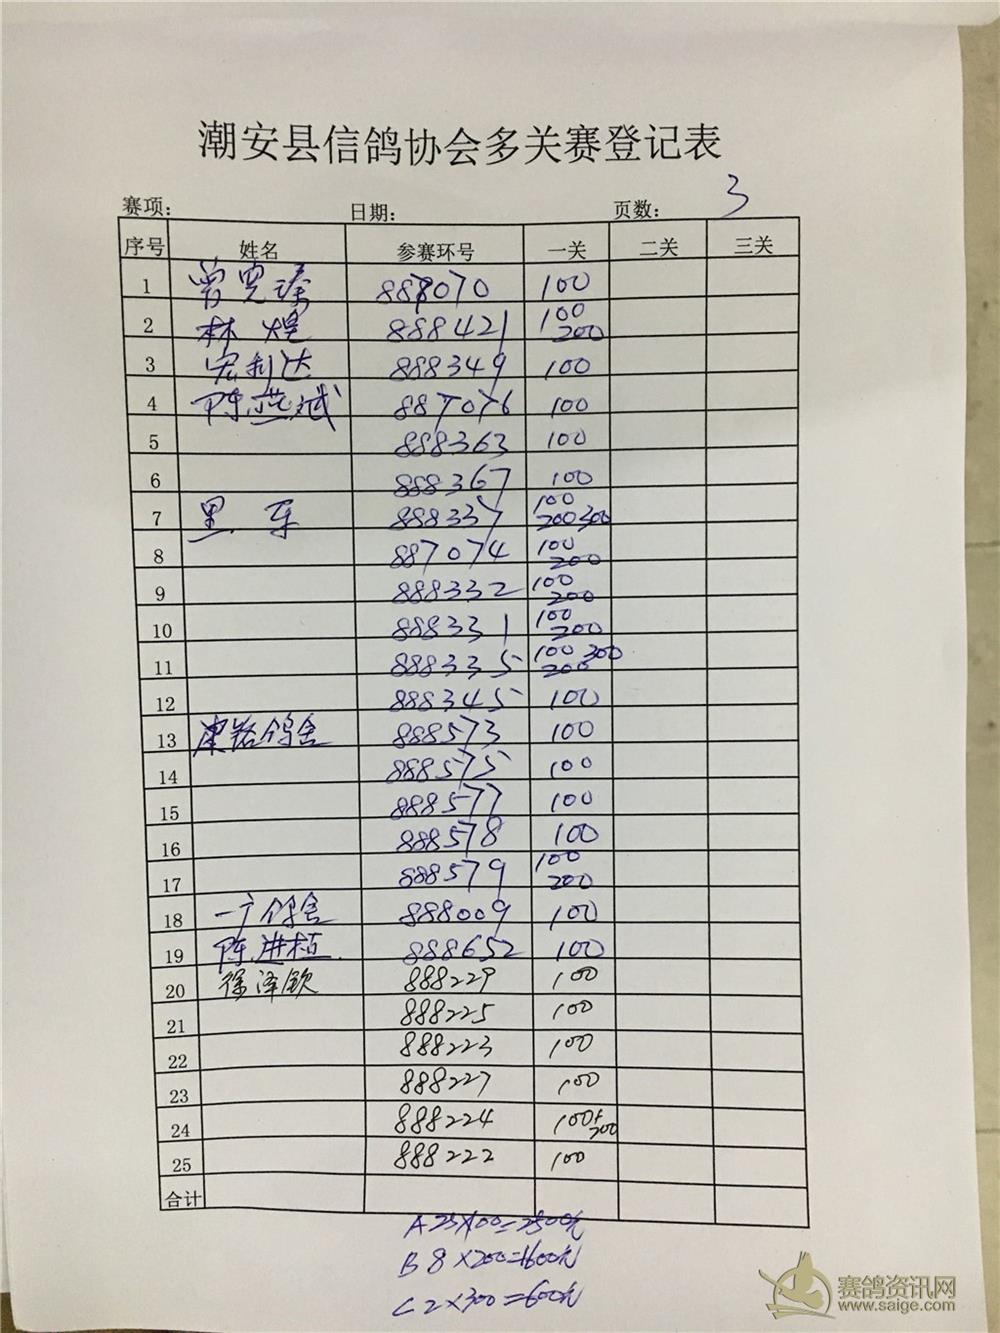 潮安县信鸽协会多关赛登记表
赛项: 日期: 页数: 3
序号 姓名 参赛环号 一关 二关 三关
1 曾宪臻 887070 100
2 林煌 888421 100 200
3 宏利达 888349 100
4 陈燕斌 887076 100
5 888363 100
6 888367 100
7 黑车 888337 100 200 300
8 887074 100 200
9 888332 100 200
10 888331 100 200
11 888335 100 300 200
12 888345 100
13 鸽舍 888573 100
14 888575 100
15 888577 100
16 888578 100
17 888579 100 200
18 一广鸽舍 888009 100
19 陈进植 888652 100
20 徐泽钦 888229 100
21 888225 100
22 888223 100
23 888227 100
24 888224 100+200
25 888222 100
合计
A 25×100=2500元
B 8×200=1600元
C 2×300=600元
赛鸽资讯网
www.saige.com